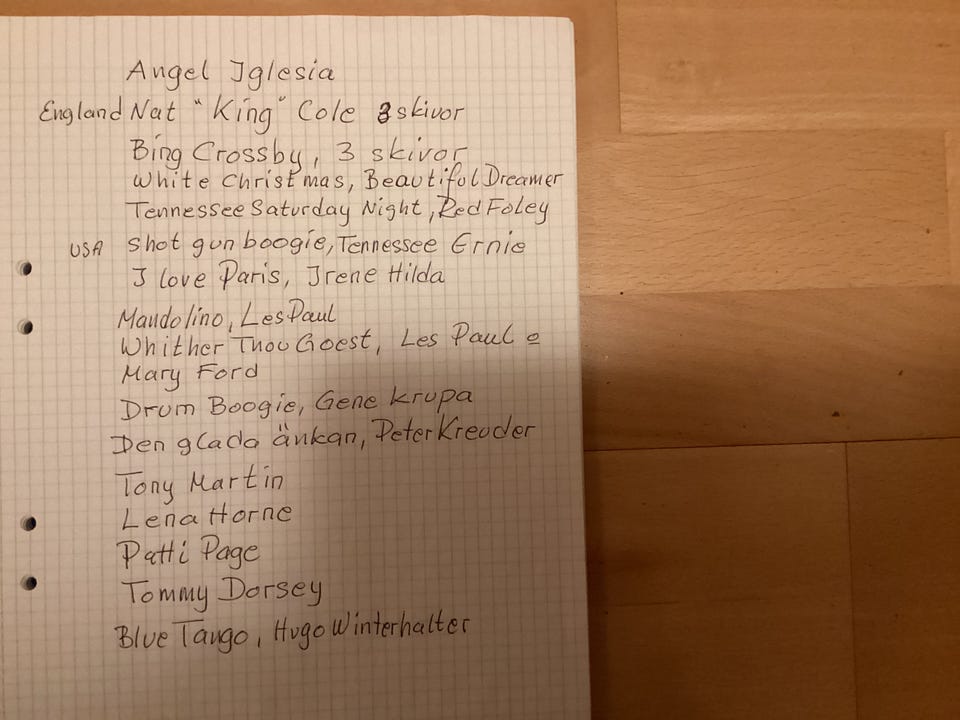 Angel Iglesia
England Nat "King" Cole 3 skivor
Bing Crossby, 3 skivor
White Christmas, Beautiful Dreamer
Tennessee Saturday Night, Red Foley
USA Shot gun boogie, Tennessee Ernie
I love Paris, Irene Hilda
Mandolino, Les Paul
Whither Thou Goest, Les Paul o
Mary Ford
Drum Boogie, Gene Krupa
Den glada änkan, Peter Kreuder
Tony Martin
Lena Horne
Patti Page
Tommy Dorsey
Blue Tango, Hugo Winterhalter